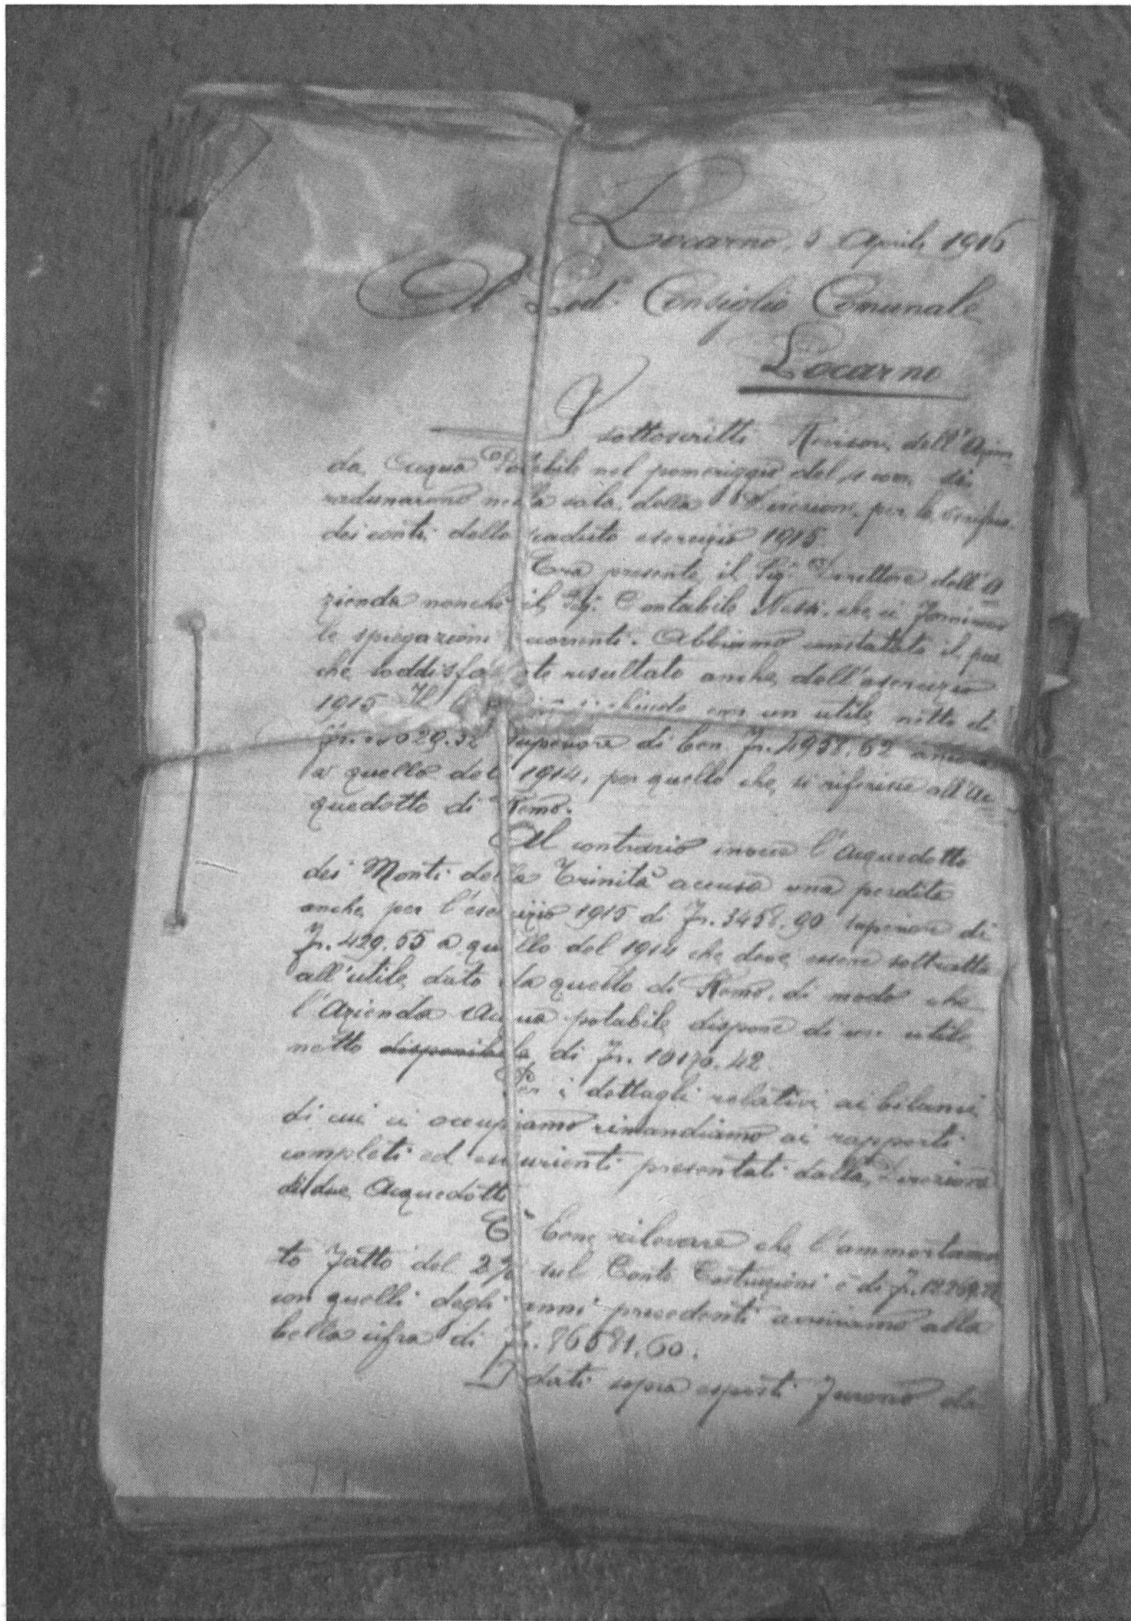 Locarno, Aprile 1916
Al Lod. Consiglio Comunale
Locarno
I sottoscritti Revisori dell'Azien
da Acqua Potabile nel pomeriggio del corr. si
radunarono nella sala della Direzione per la verifica
dei conti dello scaduto esercizio 1915
Era presente il Sig. Direttore dell'A
zienda nonchè il Sig. Contabile Nessi che ci fornirono
le spiegazioni occorrenti. Abbiamo constatato il più
che soddisfacente risultato anche dell'esercizio
1915 Il si chiude con un utile netto di
Fr. 029.32 superiore di ben Fr. 4958.62 ancora
a quello del 1914, per quello che si riferisce all'Ac
quedotto di Remo.
Al contrario invece l'Acquedotto
dei Monti della Trinità accusa una perdita
anche per l'esercizio 1915 di Fr. 3458.90 superiore di
Fr. 429.55 a quello del 1914 che deve essere sottratta
all'utile dato da quello di Remo, di modo che
l'Azienda Acqua potabile dispone di un utile
netto disponibile di Fr. 10170.42.
Per i dettagli relativi ai bilanci
di cui ci occupiamo rimandiamo ai rapporti
completi ed esaurienti presentati dalla Direzione
dei due Acquedotti
E' bene rilevare che l'ammortamen
to fatto del 2% sul Conto Costruzioni è di Fr.
con quelli degli anni precedenti arriviamo alla
bella cifra di Fr. 86581.60.
I dati sopra esposti furono da